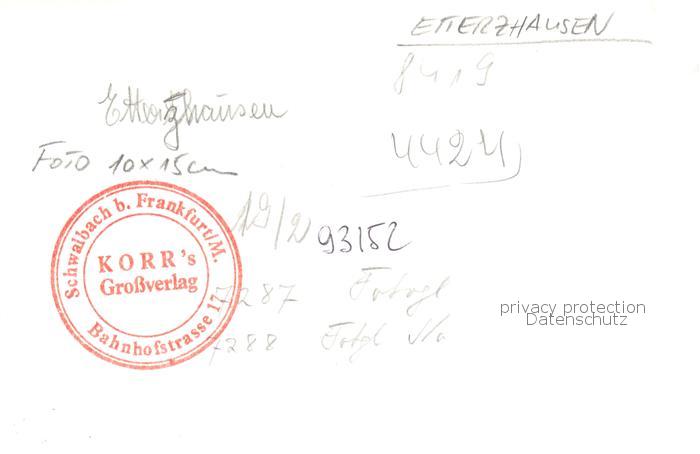 ETTERZHAUSEN
8419
Etterzhausen
4424
FOTO 10x15cm
Schwalbach b. Frankfurt/M.
KORR's
Großverlag
Bahnhofstrasse 17
19/2
93152
7287
7288
privacy protection
Datenschutz